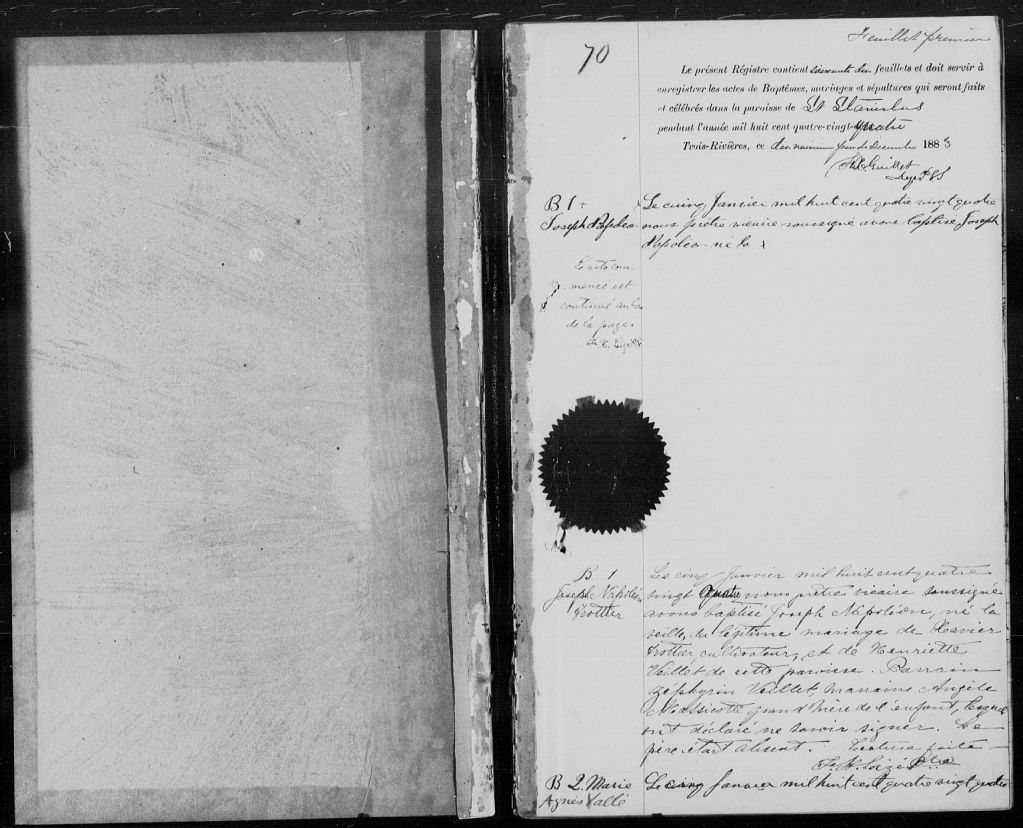 70
Feuillet premier
Le présent Régistre contient soixante dix feuillets et doit servir à
enregistrer les actes de Baptêmes, mariages et sépultures qui seront faits
et célébrés dans la paroisse de St Stanislas
pendant l'année mil huit cent quatre-vingt-quatre
Trois-Rivières, ce dix neuvième jour de Decembre 1883
B 1 +
Joseph Napoleon
Le cinq Janvier mil huit cent quatre vingt quatre
nous prêtre vicaire soussigné avons baptise Joseph
Napoleon ne la x
L'acte com
mencé est
continué au bas
de la page.
B. 1
Joseph Napoléon
Trottier
Le cinq Janvier mil huit cent quatre
vingt quatre nous prêtre vicaire soussigné
avons baptisé Joseph Napoléon, né la
veille, du légitime mariage de Xavier
Trottier, cultivateur, et de Henriette
Veillet de cette paroisse. Parrain
Zéphyrin Veillet, marraine Angèle
Massicotte grand'mère de l'enfant, lesquels
ont déclaré ne savoir signer. Le
père était absent. Lecture faite
B 2. Marie
Agnès
Le cinq Janvier mil huit cent quatre vingt quatre